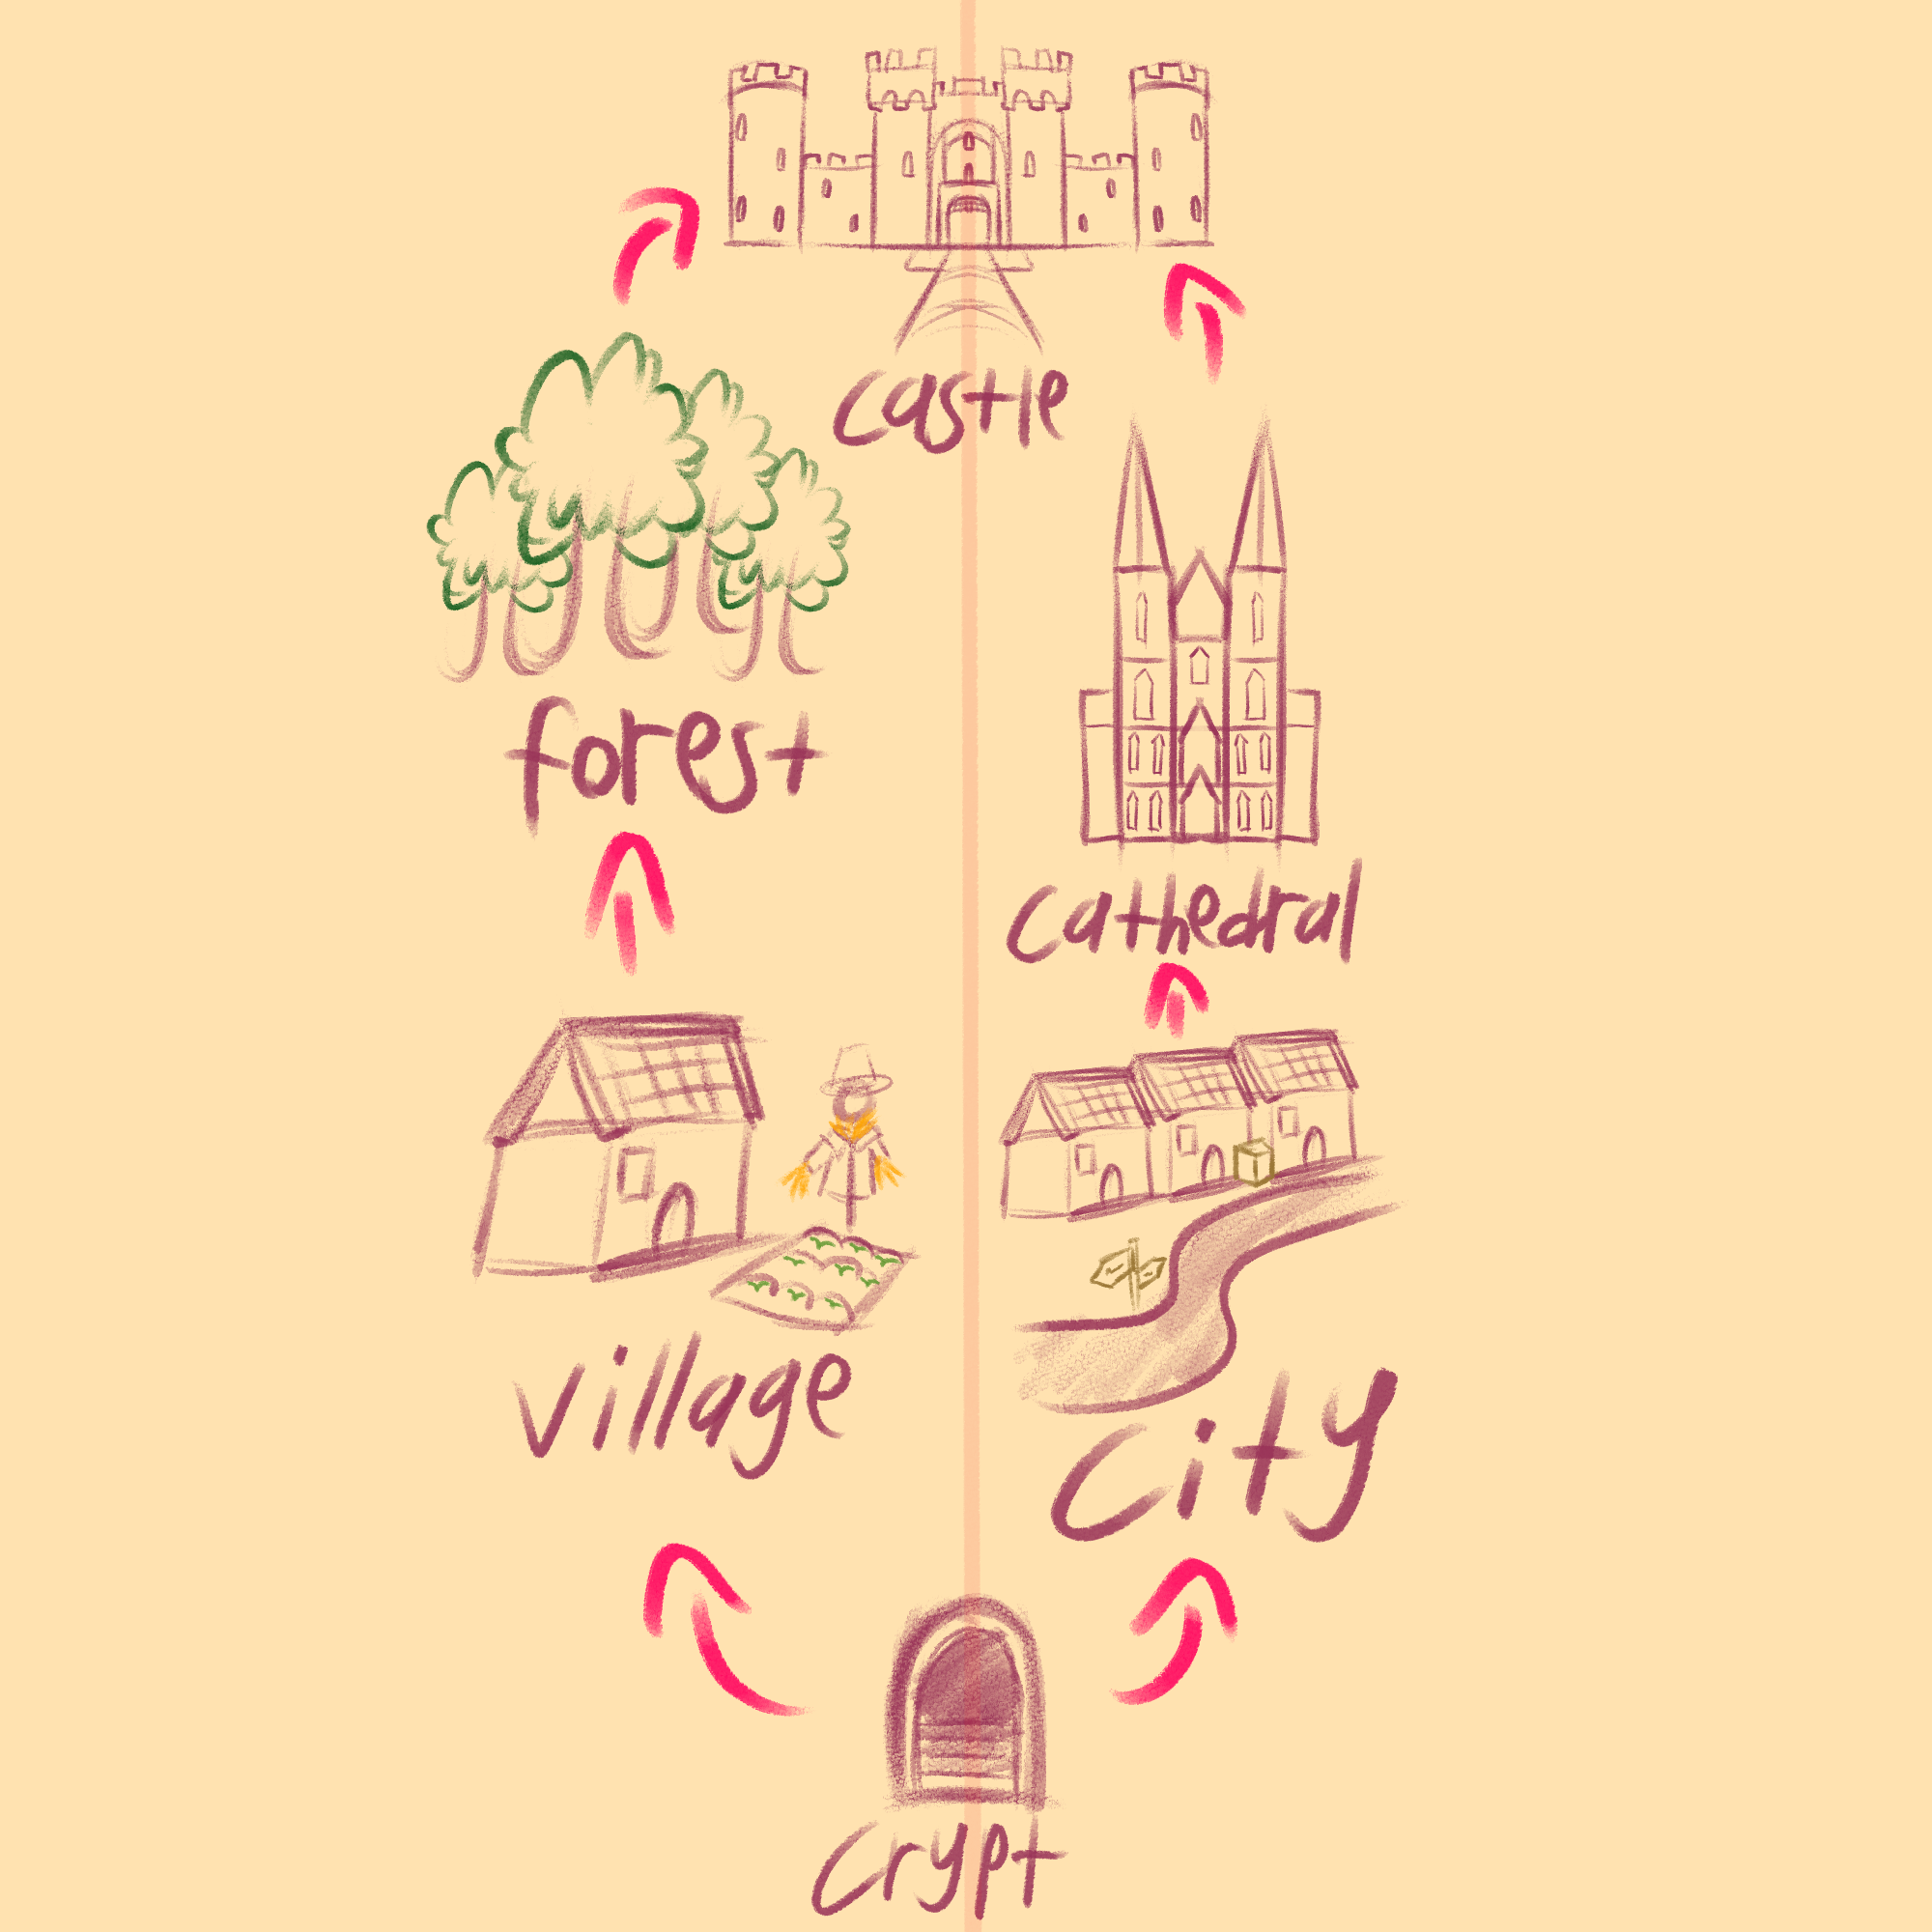 castle
forest
cathedral
village
city
crypt